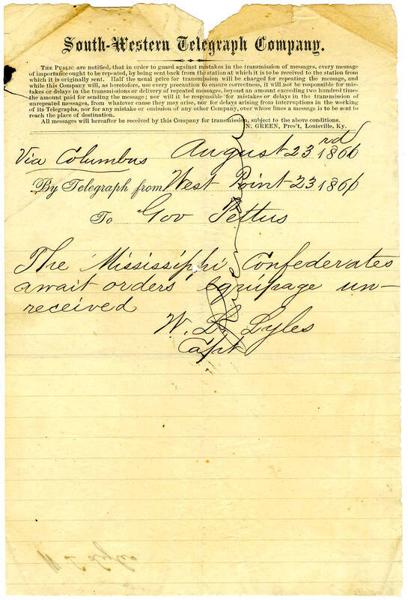 South-Western Telegraph Company.
THE PUBLIC are notified, that in order to guard against mistakes in the transmission of messages, every message
of importance ought to be repeated, by being sent back from the station at which it is to be received to the station from
which it is originally sent. Half the usual price for transmission will be charged for repeating the message, and
while this Company will, as heretofore, use every precaution to ensure correctness, it will not be responsible for mis-
takes or delays in the transmission or delivery of repeated messages, beyond an amount exceeding two hundred times
the amount paid for sending the message; nor will it be responsible for mistakes or delays in the transmission of
unrepeated messages, from whatever cause they may arise, nor for delays arising from interruptions in the working
of its Telegraphs, nor for any mistake or omission of any other Company, over whose lines a message is to be sent to
reach the place of destination.
All messages will hereafter be received by this Company for transmission, subject to the above conditions.
N. GREEN, Pres't, Louisville, Ky.
Via Columbus August 23rd 186
By Telegraph from West Point 23 186
To Gov Pettus
The Mississippi Confederates
await orders equipage un-
received
W. L. Lyles
Capt